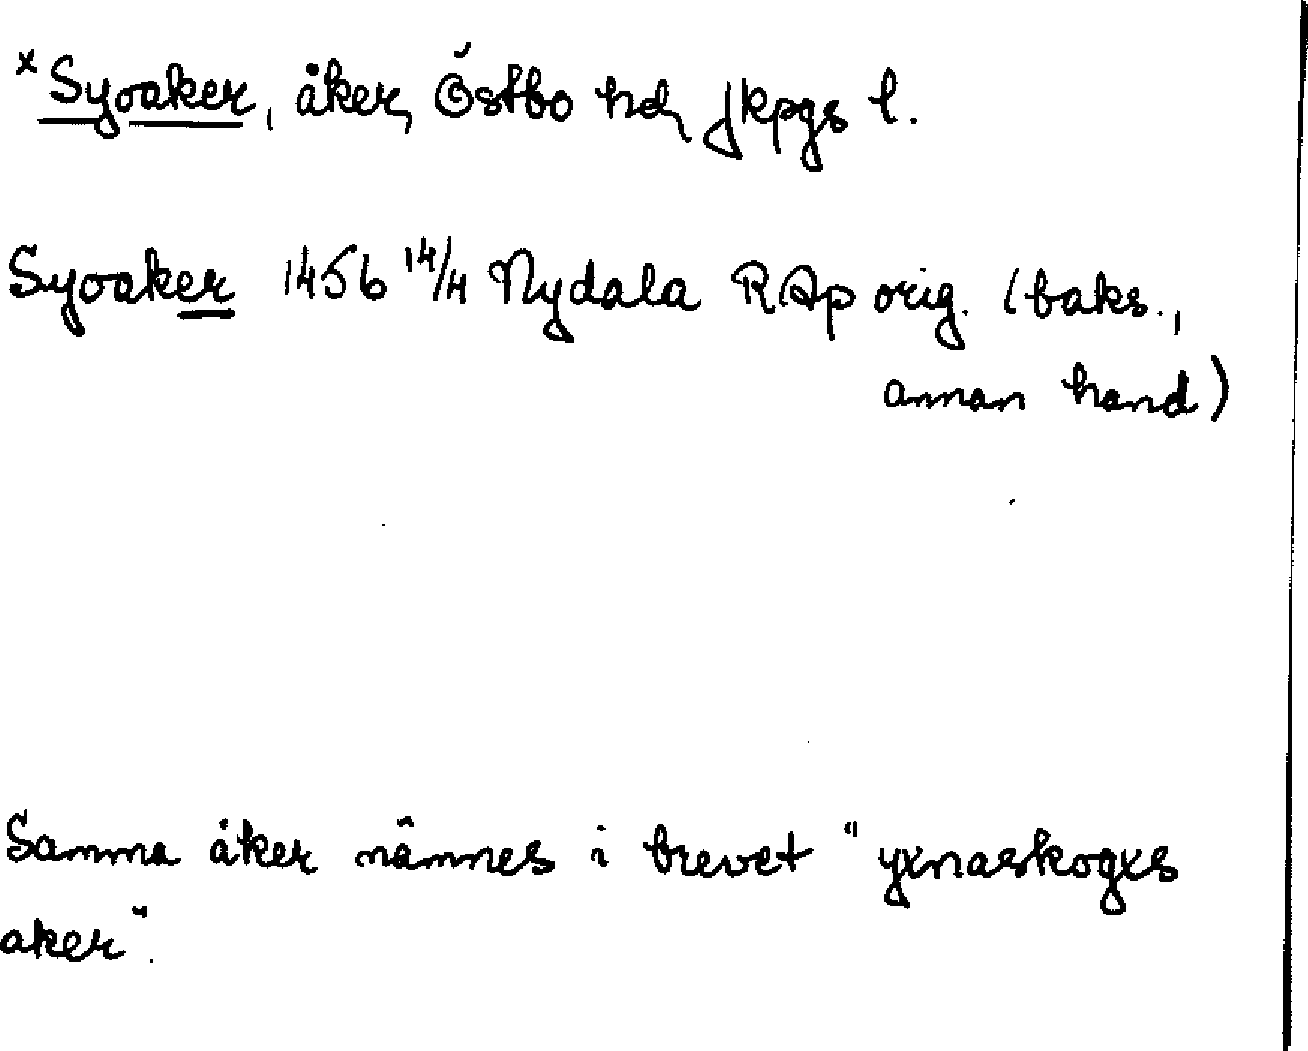 ×Syoaker, åker, Östbo hd, Jkpgs l.
Syoaker 1456 14/4 Nydala RAp orig. (baks.,
annan hand)
Samma åker nämnes i brevet "yxnaskogxs
aker".